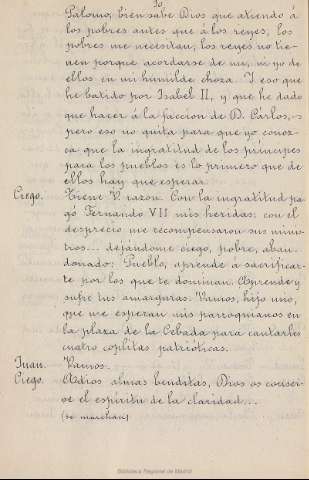 10
Palomo, bien sabe Dios que atiendo á
los pobres antes que á los reyes; los
pobres me necesitan, los reyes no tie-
nen porque acordarse de mi, ni yo de
ellos en mi humilde choza. Y eso que
he batido por Isabel II, y que he dado
que hacer á la faccion de D. Cárlos,
pero eso no quita para que yo conoz-
ca que la ingratitud de los principes
para los pueblos es lo primero que de
ellos hay que esperar.
Ciego. Tiene V. razon. Con la ingratitud pa-
gó Fernando VII mis heridas; con el
desprecio me recompensaron sus minis-
trios... dejándome ciego, pobre, aban-
donado: Pueblo, aprende á sacrificar-
te por los que te dominan. Aprende y
sufre tus amarguras. Vamos, hijo mio,
que me esperan mis parroquianos en
la plaza de la Cebada para cantarles
cuatro coplitas patrióticas.
Juan. Vamos.
Ciego. Adios almas benditas, Dios os conser-
ve el espíritu de la claridad...
(se marchan)
Biblioteca Regional de Madrid